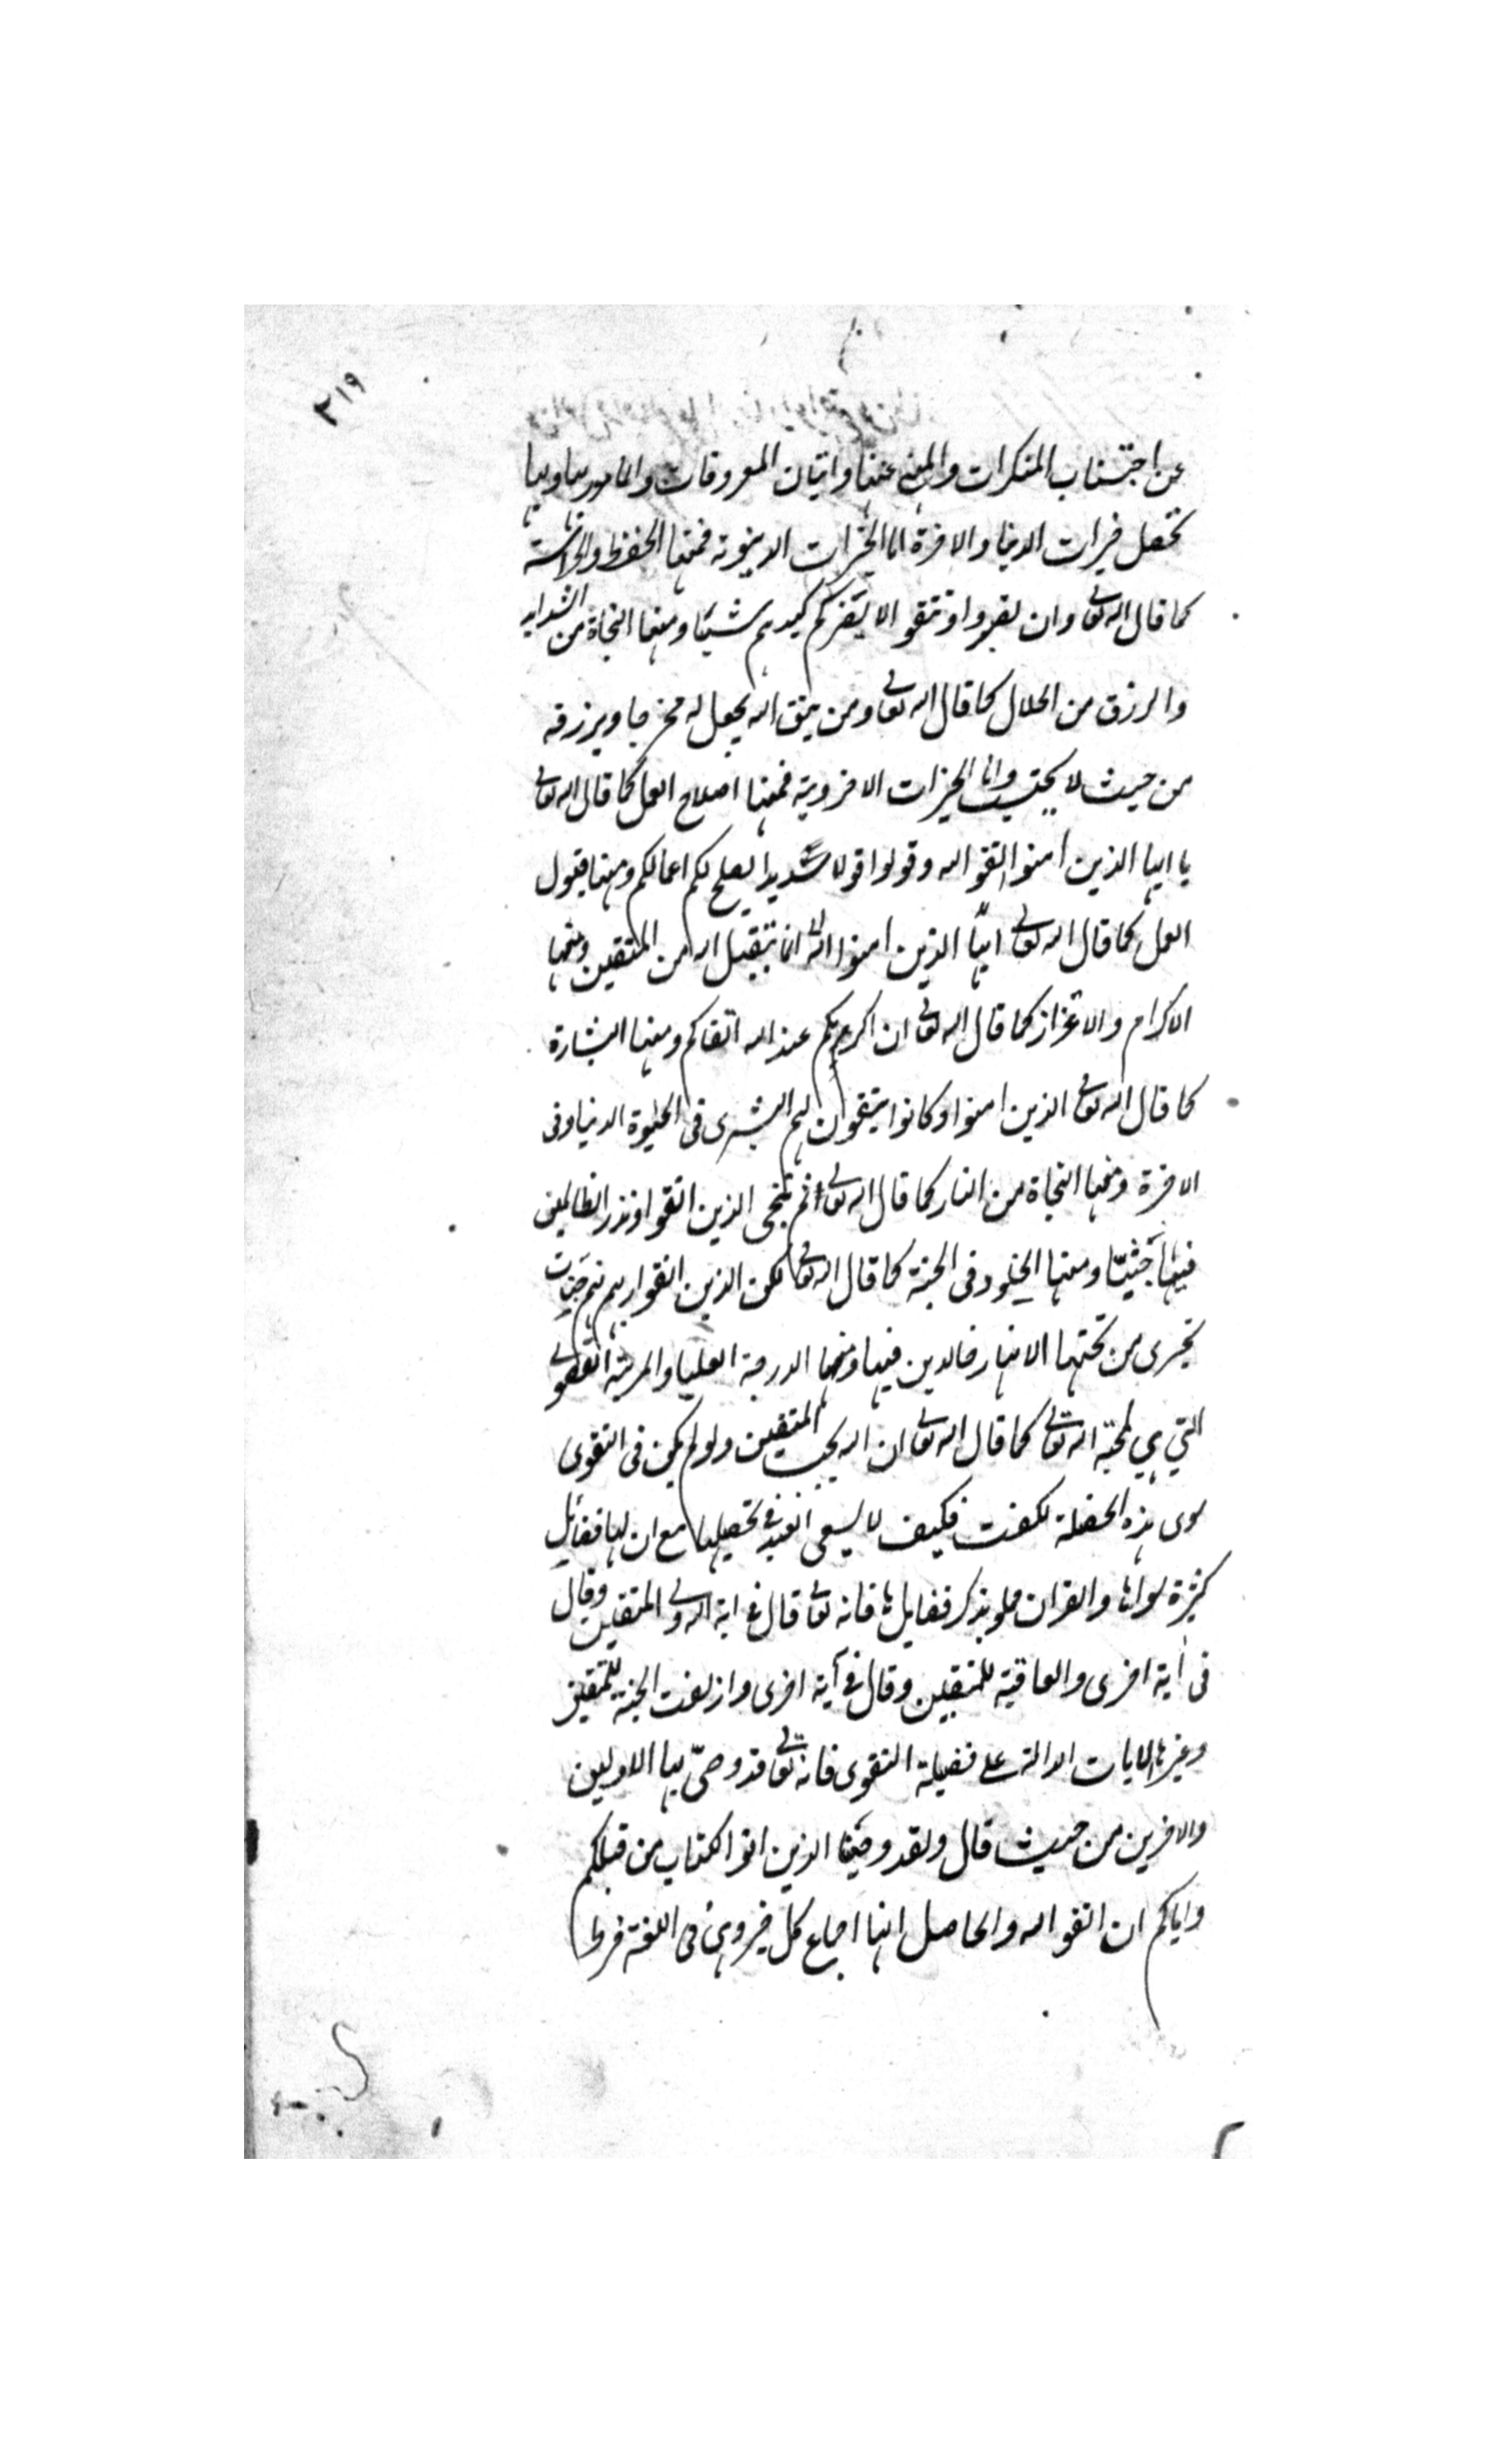 ٢١٩
عن اجتناب المنكرات والمنهى عنها واتيان المعروفات والمامور بها وبها
تحصل خيرات الدنيا والاخرة اما الخيرات الدينوية فمنها الحفظ والحراسة
كما قال الله تعالى وان تصبروا وتتقوا لا يضركم كيدهم شيئا ومنها النجاة من الشدايد
والرزق من الحلال كما قال الله تعالى ومن يتق الله يجعل له مخرجا ويرزقه
من حيث لا يحتسب واما الخيرات الاخروية فمنها اصلاح العمل كما قال الله تعالى
يا ايها الذين امنوا اتقوا الله وقولوا قولا سديدا يصلح لكم اعمالكم ومنها قبول
العمل كما قال الله تعالى ايها الذين امنوا انما يتقبل الله من المتقين ومنها
الاكرام والاعزاز كما قال الله تعالى ان اكرمكم عند الله اتقاكم ومنها البشارة
كما قال الله تعالى الذين امنوا وكانوا يتقون لهم البشرى فى الحيوة الدنيا وفى
الاخرة ومنها النجاة من النار كما قال الله تعالى ثم ننجى الذين اتقوا ونذر الظالمين
فيها جثيّا ومنها الخلود فى الجنة كما قال الله تعالى لكن الذين اتقوا ربهم لهم جنات
تجرى من تحتها الانهار خالدين فيها ومنها الدرجة العليا والمرتبة القصوى
التي هي محبة الله تعالى كما قال الله تعالى ان الله يحب المتقين ولو لم يكن فى التقوى
سوى هذه الخصلة لكفت فكيف لا يسعى العبد في تحصيلها مع ان لها فضايل
كثيرة سواها والقران مملو بذكر فضايلها فانه تعالى قال في اية الله ولى المتقين وقال
فى أية اخرى والعاقبة للمتقين وقال في آية اخرى وازلفت الجنة للمتقين
وغيرها الايات الدالة على فضيلة التقوى فانه تعالى قد وصّى بها الاولين
والاخرين من حيث قال ولقد وصينا الذين اتوا الكتاب من قبلكم
واياكم ان اتقوا الله والحاصل انها اجماع كل خير وهى فى اللغة فرط